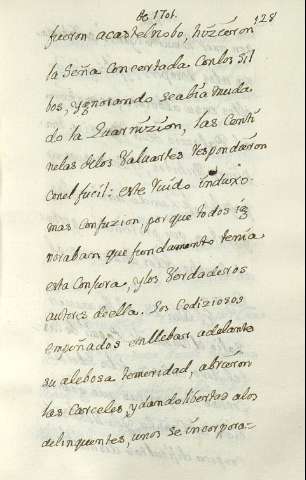 de 1701.
128
fueron acastelnobo, hizieron
la seña Concertada Con los sil
bos, y ygnorando se abia muda
do la Guarnizion, las Centi
nelas de los Valuartes respondieron
con el fucil: este ruido induxo
mas confuzion, por que todos ig
noraban que fundamento tenia
esta Conjura, y los Verdaderos
autores de ella. Los Cediziosos
empeñados en llebar adelante
su alebosa temeridad, abrieron
las Carceles, y dando libertad a los
delinquentes, unos se incorpora=